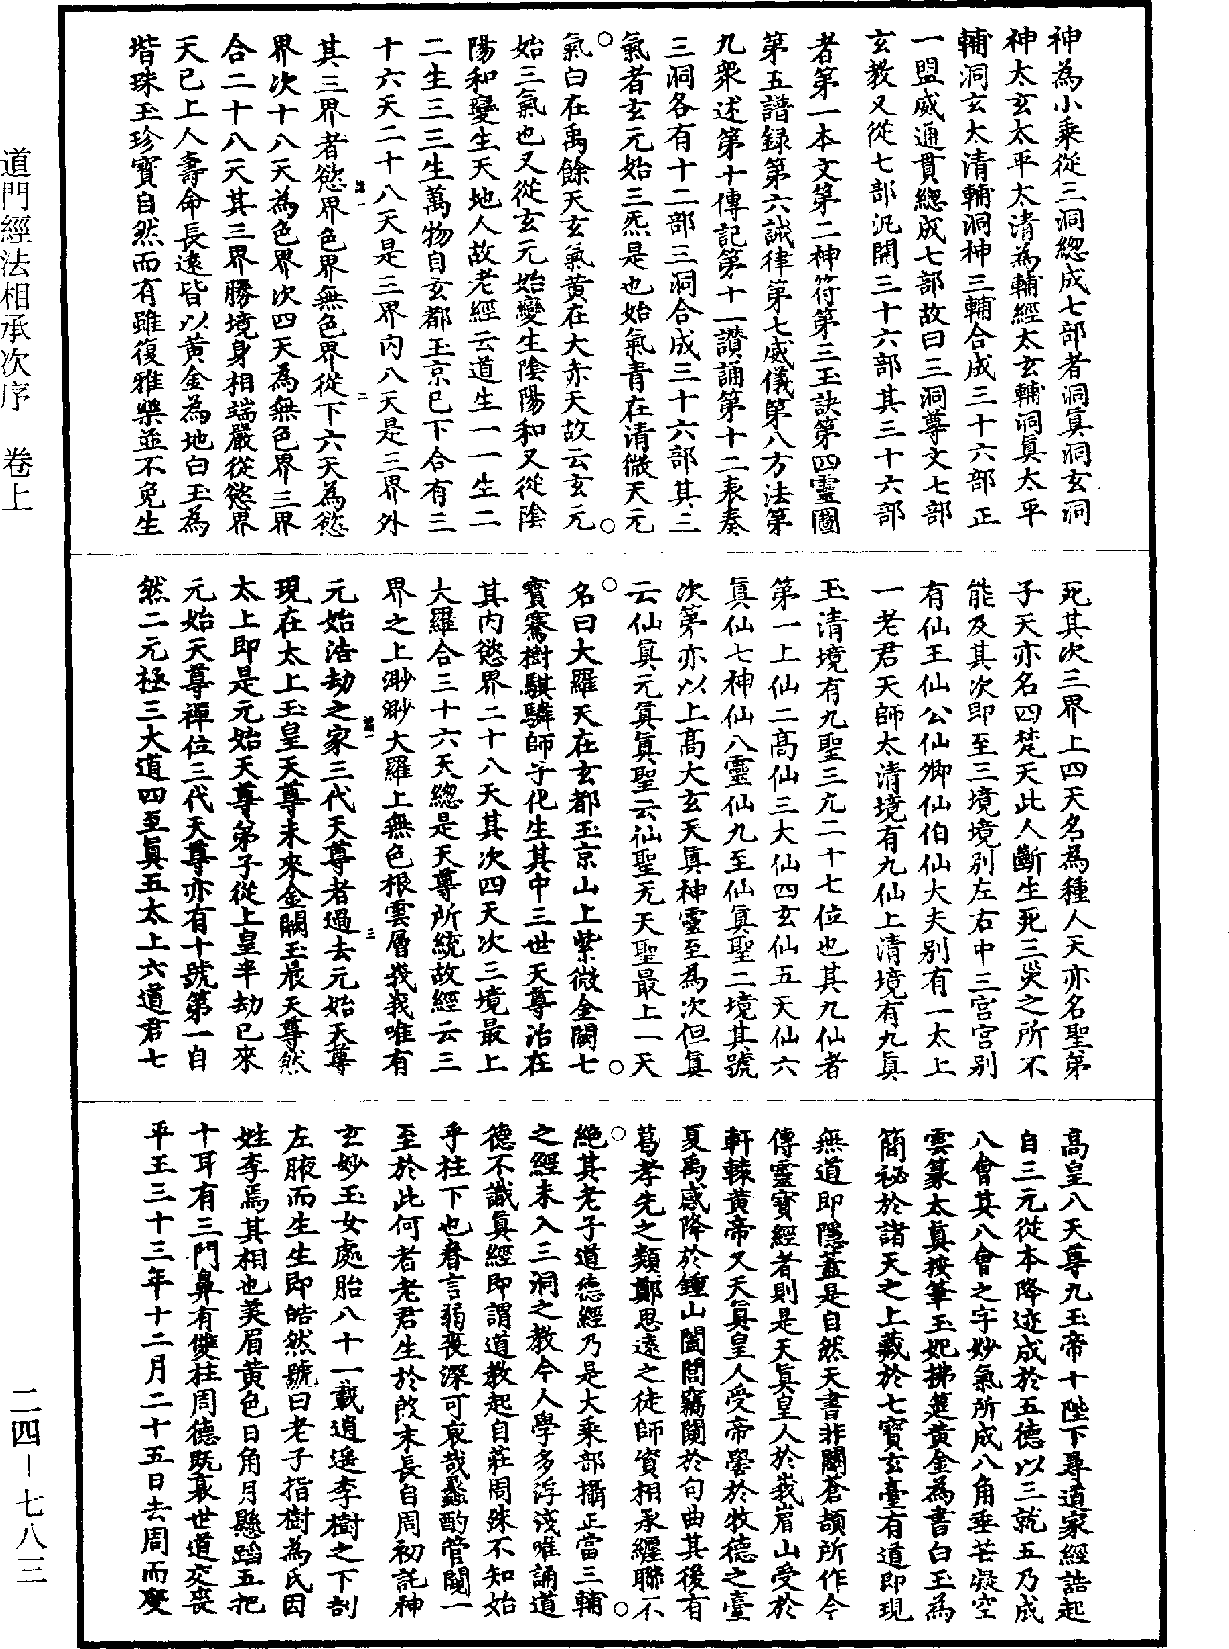 道門經法相承次序　卷上
二四—七八三
神為小乘從三洞總成七部者洞真洞玄洞
神太玄太平太清為輔經太玄輔洞真太平
輔洞玄太清輔洞神三輔合成三十六部正
一盟威通貫總成七部故曰三洞尊文七部
玄教又從七部汎開三十六部其三十六部
者第一本文第二神符第三玉訣第四靈圖
第五譜録第六誡律第七威儀第八方法第
九衆述第十傳記第十一讚誦第十二表奏
三洞各有十二部三洞合成三十六部其三
氣者玄元始三炁是也始氣青在清微天元
氣白在禹餘天玄氣黄在大赤天故云玄元
始三氣也又從玄元始變生陰陽和又從陰
陽和變生天地人故老經云道生一一生二
二生三三生萬物自玄都玉京已下合有三
十六天二十八天是三界内八天是三界外
其三界者慾界色界無色界從下六天為慾
界次十八天為色界次四天為無色界三界
合二十八天其三界勝境身相端嚴從慾界
天已上人壽命長遠皆以黄金為地白玉為
堦珠玉珍寶自然而有雖復雅樂並不免生
死其次三界上四天名為種人天亦名聖第
子天亦名四梵天此人斷生死三災之所不
能及其次即至三境境别左右中三宮宮别
有仙王仙公仙卿仙伯仙大夫别有一太上
一老君天師太清境有九仙上清境有九真
玉清境有九聖三九二十七位也其九仙者
第一上仙二髙仙三大仙四玄仙五天仙六
真仙七神仙八靈仙九至仙真聖二境其號
次第亦以上髙大玄天真神靈至為次但真
云仙真元真真聖云仙聖元天聖最上一天
名曰大羅天在玄都玉京山上紫微金闕七
寶騫樹騏驎師子化生其中三世天尊治在
其内慾界二十八天其次四天次三境最上
大羅合三十六天總是天尊所統故經云三
界之上渺渺大羅上無色根雲層峩峩唯有
元始浩劫之家三代天尊者過去元始天尊
現在太上玉皇天尊未來金闕玉晨天尊然
太上即是元始天尊弟子從上皇半劫已來
元始天尊禪位三代天尊亦有十號第一自
然二元極三大道四至真五太上六道君七
高皇八天尊九玉帝十陛下尋道家經誥起
自三元從本降迹成於五德以三就五乃成
八會其八會之字妙氣所成八角垂芒凝空
雲篆太真按筆玉妃拂筵黄金為書白玉為
簡祕於諸天之上藏於七寶玄臺有道即現
無道即隱蓋是自然天書非關蒼頡所作今
傳靈寶經者則是天真皇人於峩眉山受於
軒轅黄帝又天真皇人受帝嚳於牧德之臺
夏禹感降於鍾山闔閭竊闚於句曲其後有
葛孝先之類鄭思遠之徒師資相承纏聯不
絶其老子道德經乃是大乘部攝正當三輔
之經未入三洞之教今人學多浮淺唯誦道
德不識真經即謂道教起自莊周殊不知始
乎柱下也眷言弱喪深可哀哉蠡酌管闚一
至於此何者老君生於殷末長自周初託神
玄妙玉女處胎八十一載逍遥李樹之下剖
左腋而生生即皓然號曰老子指樹為氏因
姓李焉其相也美眉黄色日角月懸蹈五把
十耳有三門鼻有雙柱周德既衰世道交喪
平王三十三年十二月二十五日去周而度